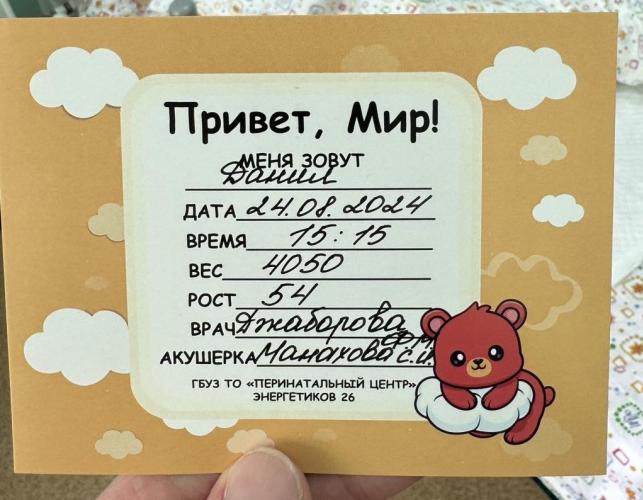 Привет, Мир!
МЕНЯ ЗОВУТ
Данил
ДАТА 24.08.2024
ВРЕМЯ 15:15
ВЕС 4050
РОСТ 54
ВРАЧ Джабарова
Ф.М.
АКУШЕРКА Манахова С.И.
ГБУЗ ТО «ПЕРИНАТАЛЬНЫЙ ЦЕНТР»
ЭНЕРГЕТИКОВ 26